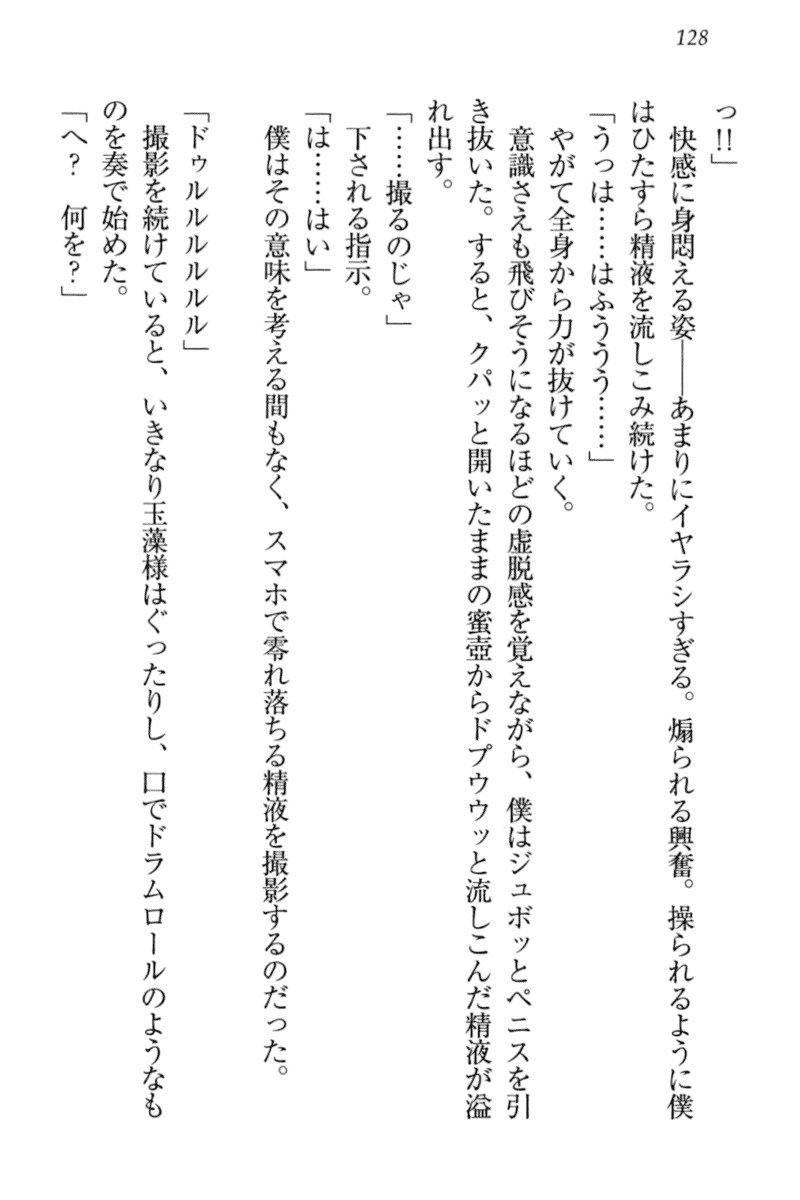 128
っ!!」
　快感に身悶える姿――あまりにイヤラシすぎる。煽られる興奮。操られるように僕
はひたすら精液を流しこみ続けた。
「うっは……はふううう……」
　やがて全身から力が抜けていく。
　意識さえも飛びそうになるほどの虚脱感を覚えながら、僕はジュボッとペニスを引
き抜いた。すると、クパッと開いたままの蜜壺からドプウウッと流しこんだ精液が溢
れ出す。
「……撮るのじゃ」
　下される指示。
「は……はい」
　僕はその意味を考える間もなく、スマホで零れ落ちる精液を撮影するのだった。
「ドゥルルルルルル」
　撮影を続けていると、いきなり玉藻様はぐったりし、口でドラムロールのようなも
のを奏で始めた。
「へ？　何を？」